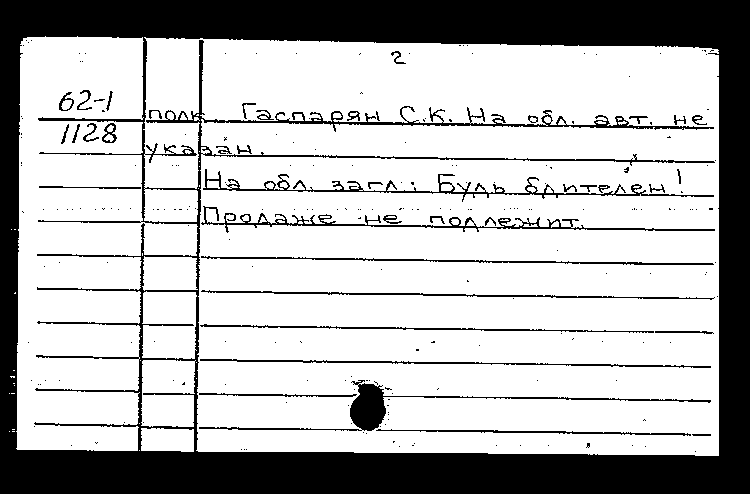 2
62-1
1128
полк Гаспарян С.К. На обл. авт. не
указан.
На обл. загл.: Будь бдителен!
Продаже не подлежит.